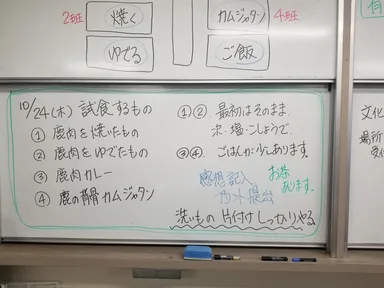 2班
焼く
ゆでる
カムジャタン
4班
ご飯
10/24(木) 試食するもの
① 鹿肉を焼いたもの
② 鹿肉をゆでたもの
③ 鹿肉カレー
④ 鹿の背骨カムジャタン
①② 最初はそのまま
次・塩・こしょうで
③④. ごはんが少しあります。
感想記入
提出
お茶
あります。
洗いもの 片付けしっかりやる
文化
場所